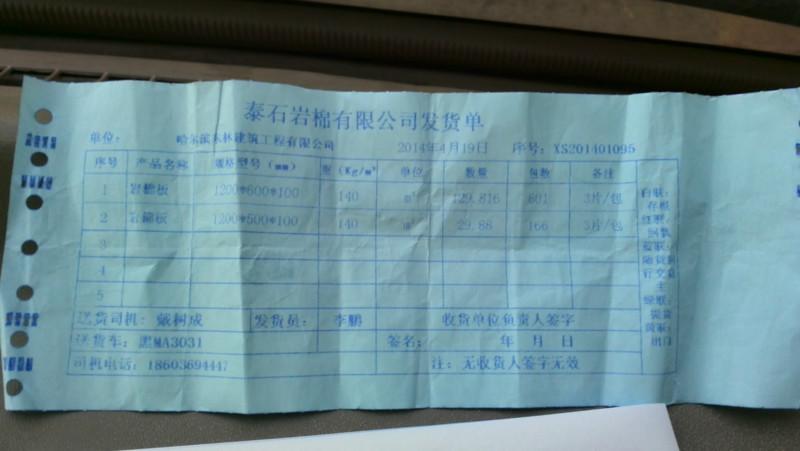 泰石岩棉有限公司发货单
单位: 哈尔滨东林建筑工程有限公司 2014年4月19日 序号: XS201401095
序号 产品名称 规格型号(mm) (Kg/m³ 单位 数量 包数 备注
1 岩棉板 1200*600*100 140 m³ 129.816 601 3片/包
2 岩棉板 1200*500*100 140 m³ 29.88 166 3片/包
3
4
5
白联:
存根
红联:
回执
蓝联:
随货同
行交货
主
绿联:
黄联:
出门
送货司机: 戴树成 发货员: 李鹏 收货单位负责人签字
送货车: 黑MA3031 签名: 年 月 日
司机电话: 18603694447 注: 无收货人签字无效